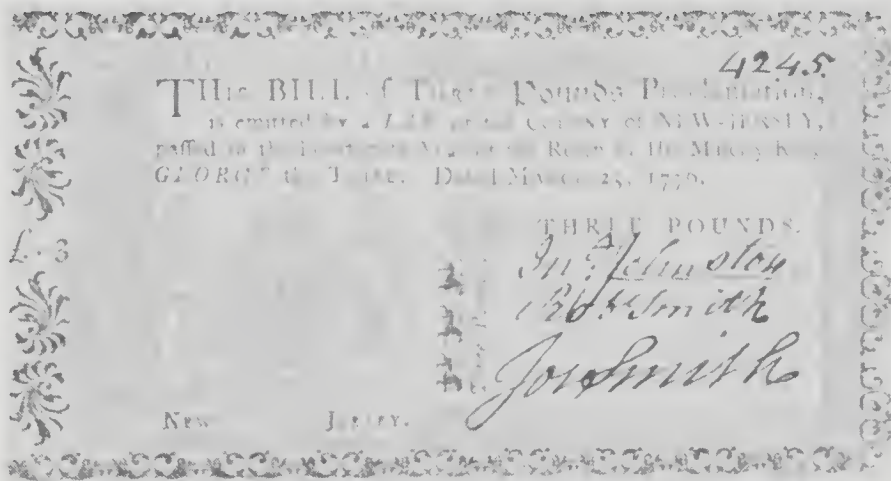 4245.
THis BILL of Three Pounds Proclamation,
is emitted by a LAW of the COLONY of NEW-JERSEY,
passed in the Year of the Reign of His Majesty King
GEORGE the Third. Dated March 25, 1776.
THREE POUNDS.
£. 3
Jno Johnston
Smith
Jos Smith
NEW JERSEY.